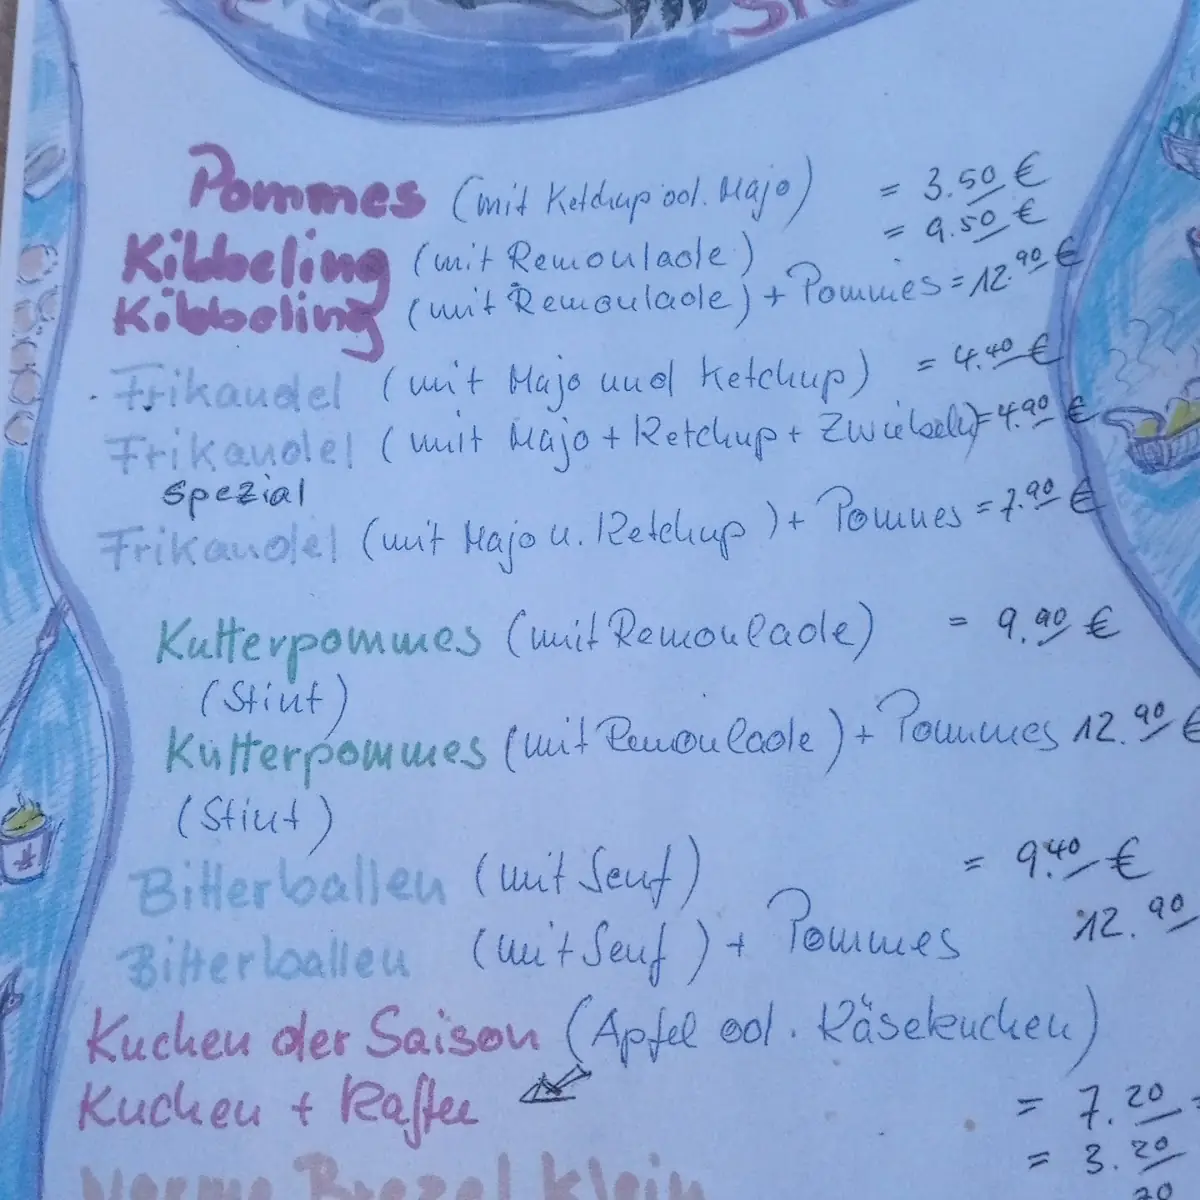 Pommes (mit Ketchup od. Majo) = 3.50 €
Kibbeling (mit Remoulade) = 9.50 €
Kibbeling (mit Remoulade) + Pommes = 12.90 €
Frikandel (mit Majo und Ketchup) = 4.40 €
Frikandel (mit Majo + Ketchup + Zwiebeln) = 4.90 €
spezial
Frikandel (mit Majo u. Ketchup) + Pommes = 7.90 €
Kutterpommes (mit Remoulade) = 9.90 €
(Stint)
Kutterpommes (mit Remoulade) + Pommes 12.90 €
(Stint)
Bitterballen (mit Senf) = 9.40 €
Bitterballen (mit Senf) + Pommes 12.90
Kuchen der Saison (Apfel od. Käsekuchen)
Kuchen + Kaffee = 7.20
= 3.20
Warme Brezel klein